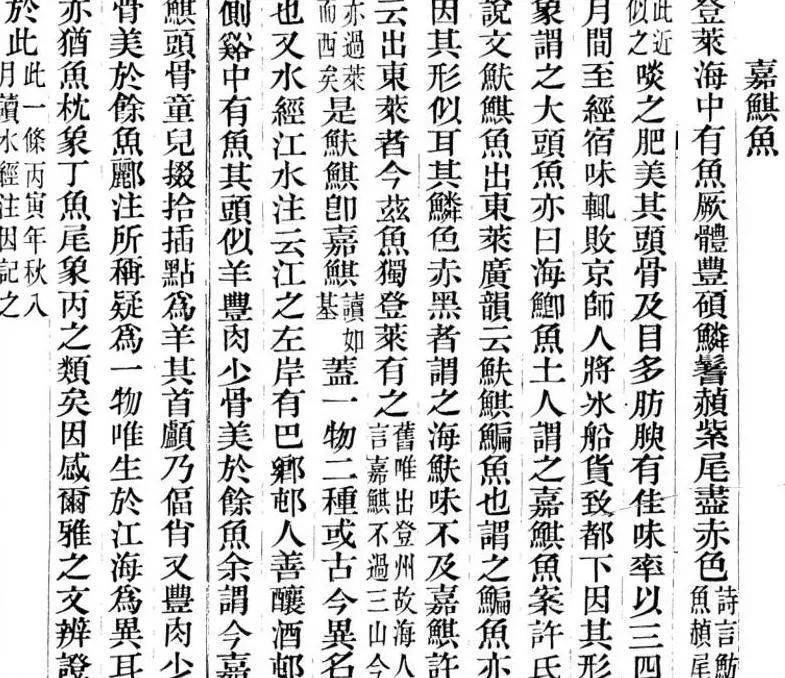 嘉鯕魚
登萊海中有魚厥體豐碩鱗鬐赬紫尾盡赤色
詩言魴
魚赬尾
此近
似之
啖之肥美其頭骨及目多肪腴有佳味率以三四
月間至經宿味輒敗京師人將冰船貨致都下因其形
象謂之大頭魚亦曰海鯽魚土人謂之嘉鯕魚案許氏
說文鯕魚出東萊廣韻云鯕鯿魚也謂之鯿魚亦
因其形似耳其鱗色赤黑者謂之海味不及嘉鯕許
云出東萊者今茲魚獨登萊有之
舊唯出登州故海人
言嘉鯕不過三山今
亦過萊
而西矣
是鯕卽嘉鯕
讀如
基
蓋一物二種或古今異名
也又水經江水注云江之左岸有巴鄉邨人善釀酒邨
側谿中有魚其頭似羊豐肉少骨美於餘魚余謂今嘉
鯕頭骨童兒掇拾插點為羊其首顱乃偪肖又豐肉少
骨美於餘魚酈注所稱疑為一物唯生於江海為異耳
亦猶魚枕象丁魚尾象丙之類矣因感爾雅之文辨證
於此
此一條丙寅年秋八
月讀水經注因記之